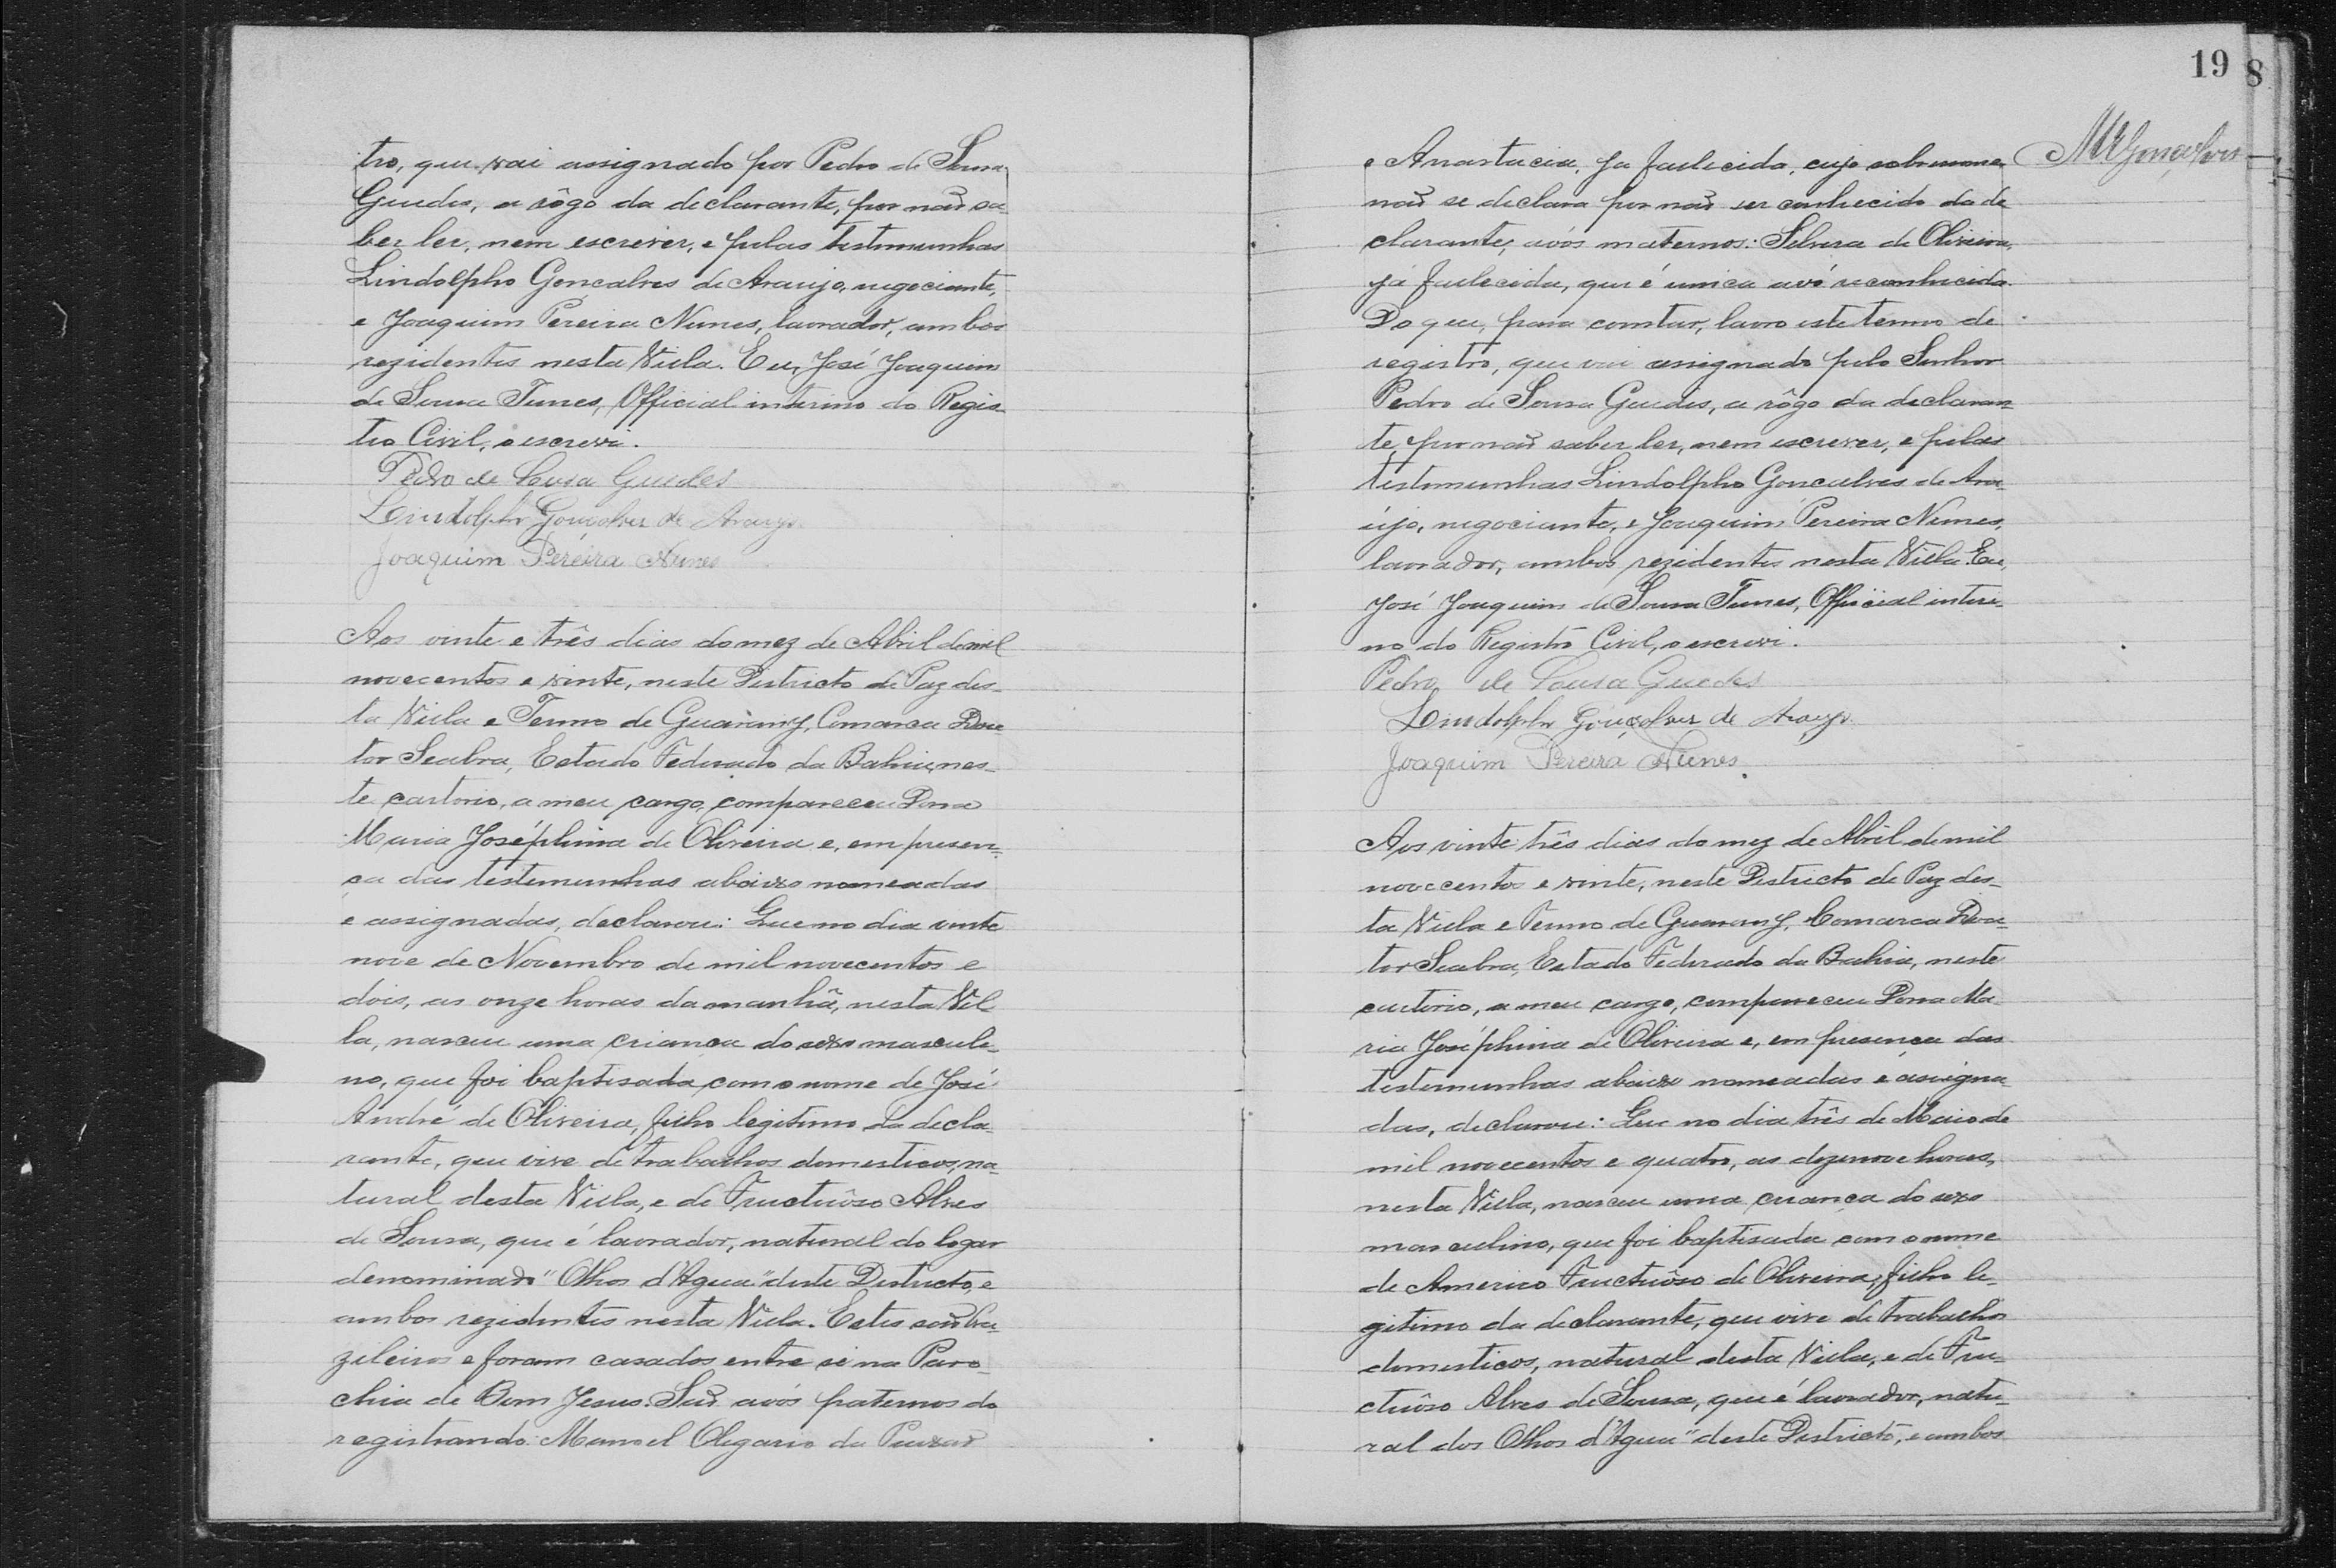 tro, que vai assignado por Pedro de Sousa
Guedes, a rôgo da declarante, por não sa-
ber ler, nem escrever, e pelas testimunhas
Lindolpho Gonçalves de Araujo, negociante,
e Joaquim Pereira Nunes, lavrador, ambos
rezidentes nesta Villa. Eu, José Joaquim
de Sousa Tunes, Official interino do Regis-
tro Civil, o escrevi.
Pedro de Sousa Guedes
Lindolpho Gonçalves de Araujo
Joaquim Pereira Nunes
Aos vinte e três dias do mez de Abril de mil
novecentos e vinte, neste Districto de Paz des-
ta Villa e Termo de Guarany, Comarca Dou
tor Seabra, Estado Federado da Bahia, nes-
te cartorio, a meu cargo, compareceu Dona
Maria Joséphina de Oliveira e, em presen-
ça das testemunhas abaixo nomeadas
e assignadas, declarou: Que no dia vinte
nove de Novembro de mil novecentos e
dois, as onze horas da manhã, nesta Vil-
la, nasceu uma criança do sexo masculi-
no, que foi baptisada com o nome de José
André de Oliveira, filho legitimo da decla-
rante, que vive de trabalhos domesticos, na-
tural desta Villa, e de Fructuôso Alves
de Sousa, que é lavrador, natural do logar
denominado "Olhos d'Agua" deste Districto, e
ambos rezidentes nesta Villa. Estes são bra-
zileiros e foram casados entre si na Paro-
chia de Bom Jesus. São avós paternos do
registrando: Manoel Olegario da
19 8
MGonçalves
e Anastacia, ja fallecida, cujo sobrenome
não se declara por não ser conhecido da de
clarante; avós maternos: Silvera de Oliveira,
já fallecida, que é unica avó reconhecida.
Do que, para constar, lavro este termo de
registro, que vai assignado pelo Senhor
Pedro de Sousa Guedes, a rôgo da declaran-
te, por não saber ler, nem escrever, e pelas
testimunhas Lindolpho Goncalves de Ara-
újo, negociante, e Joaquim Pereira Nunes,
lavrador, ambos rezidentes nesta Villa. Eu,
José Joaquim de Sousa Tunes, Official interi-
no do Registro Civil, o escrevi.
Pedro de Sousa Guedes
Lindolpho Gonçalves de Araujo
Joaquim Pereira Nunes.
Aos vinte três dias do mez de Abril de mil
novecentos e vinte, neste Districto de Paz des-
ta Villa e Termo de Guarany, Comarca Dou-
tor Seabra, Estado Federado da Bahia, neste
cartorio, a meu cargo, compareceu Dona Ma
ria Joséphina de Oliveira e, em presença das
testemunhas abaixo nomeadas e assigna-
das, declarou: Que no dia três de Maio de
mil novecentos e quatro, as dezenove horas,
nesta Villa, nasceu uma criança do sexo
masculino, que foi baptisada com o nome
de Americo Fructuôso de Oliveira, filho le-
gitimo da declarante, que vive de trabalhos
domesticos, natural desta Villa, e de Fru-
ctuôso Alves de Sousa, que é lavrador, natu-
ral dos Olhos d'Agua" deste Districto, e ambos